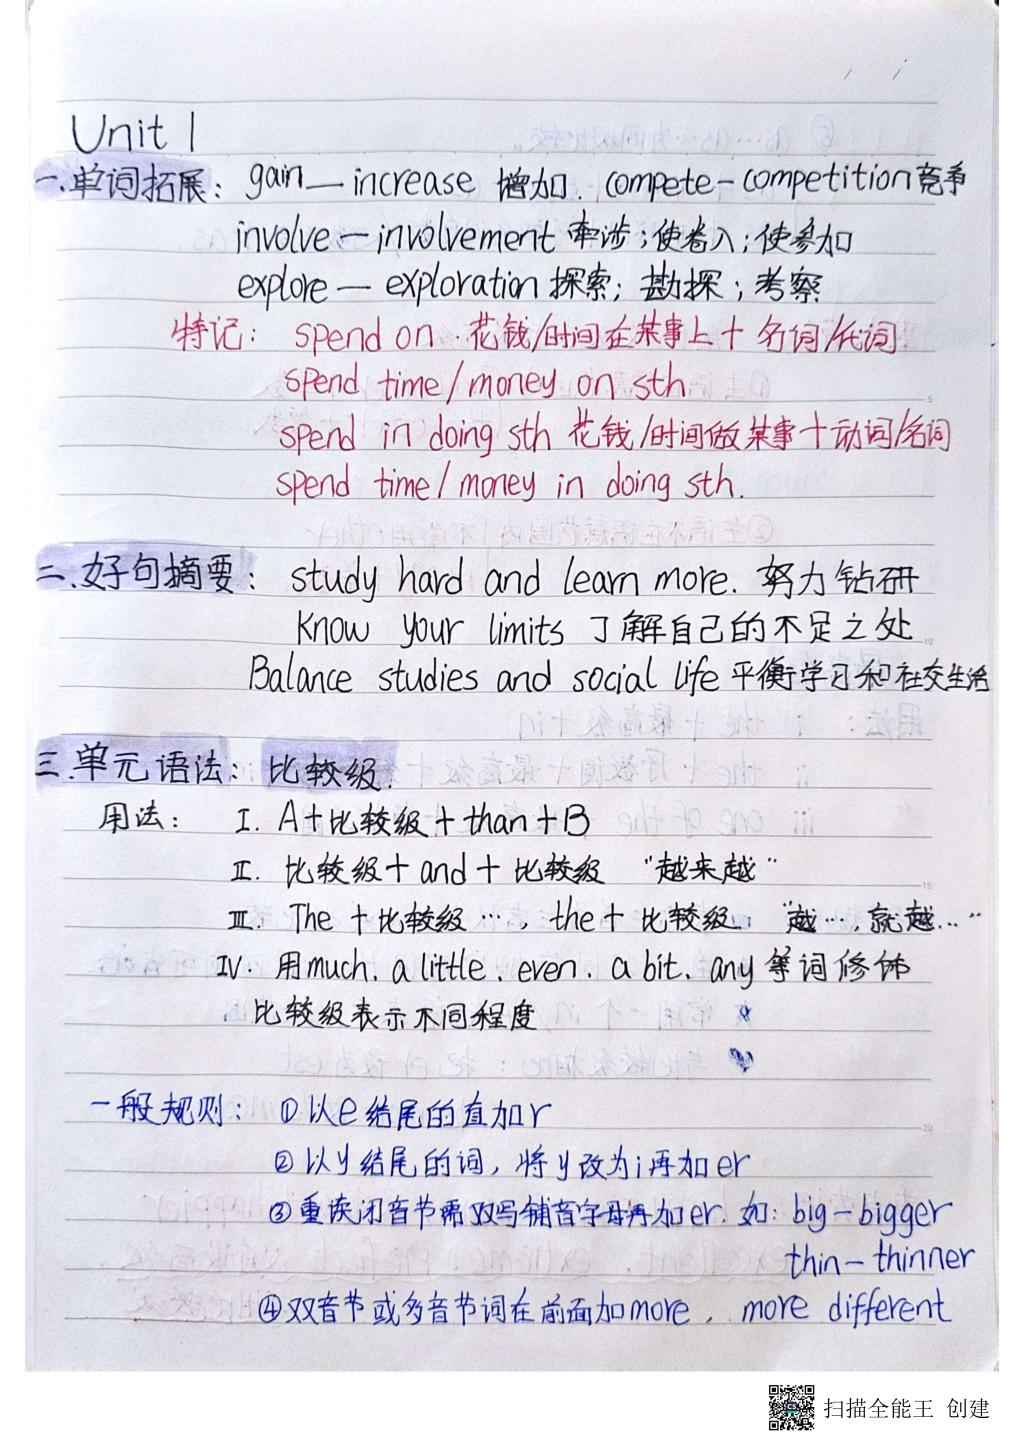 Unit 1
一.单词拓展: gain — increase 增加. compete — competition 竞争
involve — involvement 牵涉;使卷入;使参加
explore — exploration 探索; 勘探; 考察
特记: spend on 花钱/时间在某事上 + 名词/代词
spend time/money on sth
spend in doing sth 花钱/时间做某事 + 动词/名词
spend time/money in doing sth.
二.好句摘要: study hard and learn more. 努力钻研
Know your limits 了解自己的不足之处
Balance studies and social life 平衡学习和社交生活
三.单元语法: 比较级.
用法: I. A+比较级+than+B
II. 比较级+and+比较级 "越来越"
III. The +比较级…, the+比较级. "越…,就越…"
IV. 用much. a little. even. a bit. any 等词修饰
比较级表示不同程度
一般规则: ①以e结尾的直加r
②以y结尾的词, 将y改为i再加er
③重读闭音节需双写辅音字母再加er. 如: big — bigger
thin — thinner
④双音节或多音节词在前面加more, more different
扫描全能王 创建